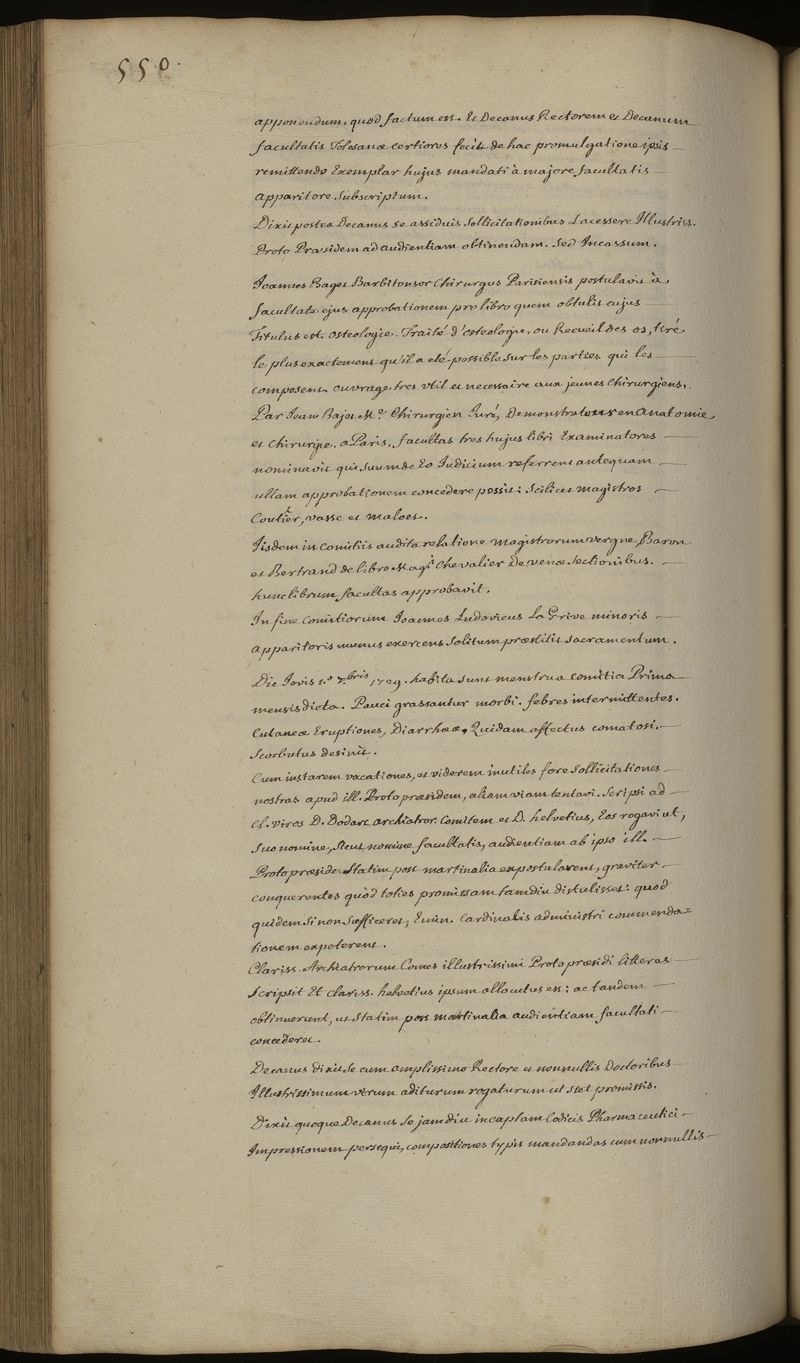 550.
apponendum. quod factum est. Et Decanus Rectorem et Decanum
facultatis Tolosanæ certiores fecit de hac promulgatione ipsis
remittendo Exemplar hujus mandati à majore facultatis
apparitore Subscriptum.
Dixit postea Decanus se assiduis Sollicitationibus Lacessere Illustriss.
Proto Præsidem ad audientiam obtinendam. Sed Incassum.
Joannes Baget Barbitonsor Chirurgus Parisiensis postulavit à
facultate ejus approbationem pro libro quem obtulit cujus
Titulus est. Osteologie. Traité d'osteologie, ou Recueil des os, tiré
le plus exactement qu'il a eté possible sur les parties qui les
composent. ouvrage tres util et necessaire aux jeunes Chirurgiens.
Par Jean Bajet M.e Chirurgien Juré, Demonstrateur en Anatomie
et Chirurgie. a Paris. facultas tres hujus libri Examinatores
nominavit qui suum de Eo Judicium referrent antequam
ullam approbationem concedere possit: Scilicet magistros
Coutier, vasse et maloet.
Jisdem in Comitiis audita relatione magistrorum vergne, Baron
et Bertrand de libro Magi Chevalier De venæ Sectionibus.
hunc librum facultas approbavit.
In fine Comitiorum Joannes Ludovicus La Grive minoris
apparitoris munus exercens Solitum præstitit sacramentum.
Die Jovis 1.o 7.bris 1729. habita sunt menstrua comitia Prima
mensis dicta. Pauci grassantur morbi. febres intermittentes.
Cutaneæ Eruptiones, Diarrhææ, Quidam affectus comatosi.
Scorbutus desinit.
Cum instarem vacationes, et viderem inutiles fore Sollicitationes
nostras apud ill. Protopræsidem, aliam viam tentavi. Scripsi ad
Cl. viros D. Dodart archiatror. Comitem et D. helvetius, Eos rogavi ut,
Suo nomine, sicut nomine facultatis, audientiam ab ipso ill.
Protopræside Statim post martinalia expostularent, graviter
conquerentes quòd toties promissam tamdiu distulisset: quod
quidem si non Sufficeret, Emin. Cardinalis administri commenda=
tionem expeterent.
Clariss. Archiatrorum Comes illustrissimi Protopræsidi litteras
Scripsit Et clariss. helvetius ipsum allocutus est: ac tandem
obtinuerunt, ut Statim post martinalia audientiam facultati
concederet.
Decanus dixit se cum amplissimo Rectore et nonnullis Doctoribus
Illustrissimum virum aditurum rogaturum ut stet promissis.
Dixit quoque Decanus Se jamdiu incæptam Codicis Pharmaceutici
Impressionem persequi, compositiones typis mandandas cum nonnullis